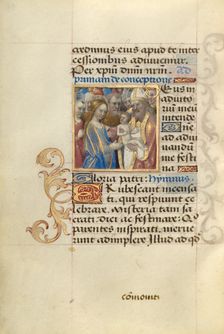 credimus eius apud te inter
cessionibus adiuuemur.
Per xpm dnm nrm. ad
primam de conceptione
Eus in
adiuto
rium meu
intende
Dne ad
adiuuand
um me fes
tina
Gloria patri: Hymnus.
Rubescant incensa
ti, qui respuunt ce
lebrare. Misteria tam sa
cri ac grandis festi. Q
parentes inspirati, merue
runt adimplere Illud ad qd